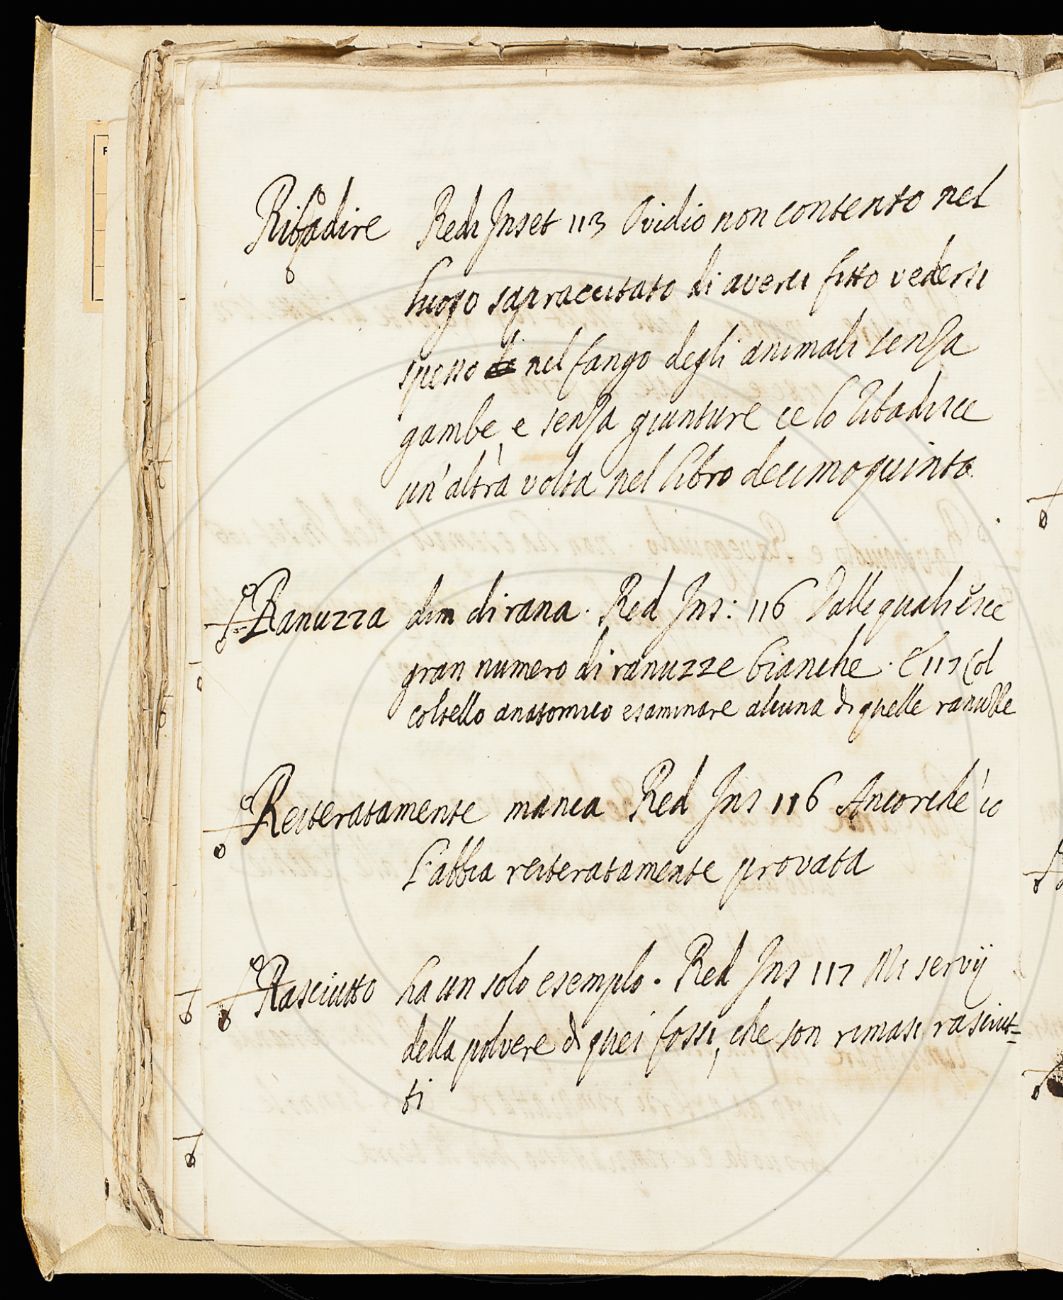 Ribadire Redi Inset 113 Ovidio non contento nel
luogo sopraccitato di averci fatto vedersi
spesso nel fango degli animali senza
gambe, e senza giunture ce lo ribadisce
un'altra volta nel libro decimoquinto.
Ranuzza dim di rana. Red Ins: 116 Dalle quali esce
gran numero di ranuzze bianche. E 117 Col
coltello anatomico esaminare alcuna di quelle ranuzze
Reiteratamente manca Red Ins 116 Ancorchè io
l'abbia reiteratamente provata
Rasciutto ha un solo esemplo. Red Ins 117 Mi servij
della polvere di quei fossi, che son rimasi rasciut=
ti